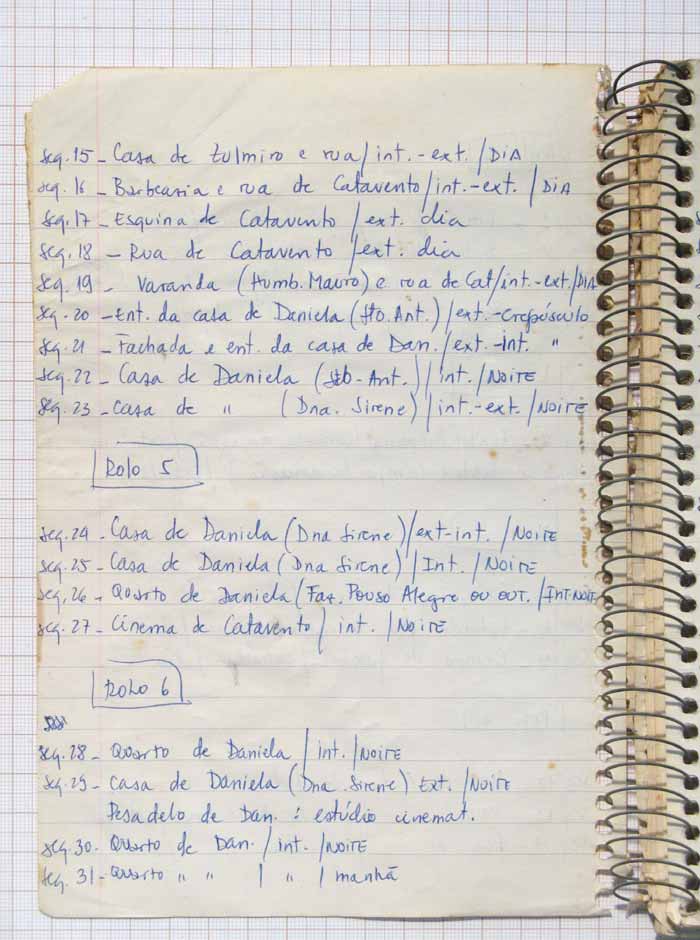 Seq. 15 - Casa de Zulmiro e rua / int. - ext. / DIA
Seq. 16 - Barbearia e rua de Catavento / int. - ext. / DIA
Seq. 17 - Esquina de Catavento / ext. dia
Seq. 18 - Rua de Catavento / ext. dia
Seq. 19 - Varanda (Humb. Mauro) e rua de Cat / int. - ext. / DIA
Seq. 20 - Ent. da casa de Daniela (Sto. Ant.) / ext. - Crepúsculo
Seq. 21 - Fachada e ent. da casa de Dan. / ext. - int. "
Seq. 22 - Casa de Daniela (Sto. Ant.) / int. / NOITE
Seq. 23 - Casa de " (Dna. Sirene) / int. - ext. / NOITE
ROLO 5
Seq. 24 - Casa de Daniela (Dna Sirene) / ext - int. / NOITE
Seq. 25 - Casa de Daniela (Dna Sirene) / Int. / NOITE
Seq. 26 - Quarto de Daniela (Faz. Pouso Alegre ou out. / INT NOIT
Seq. 27 - Cinema de Catavento / int. / NOITE
ROLO 6
Seq. 28 - Quarto de Daniela / int. / NOITE
Seq. 29 - Casa de Daniela (Dna. Sirene) Ext. / NOITE
Pesadelo de Dan. : estúdio cinemat.
Seq. 30 - Quarto de Dan. / int. / NOITE
Seq. 31 - Quarto " " / " / manhã